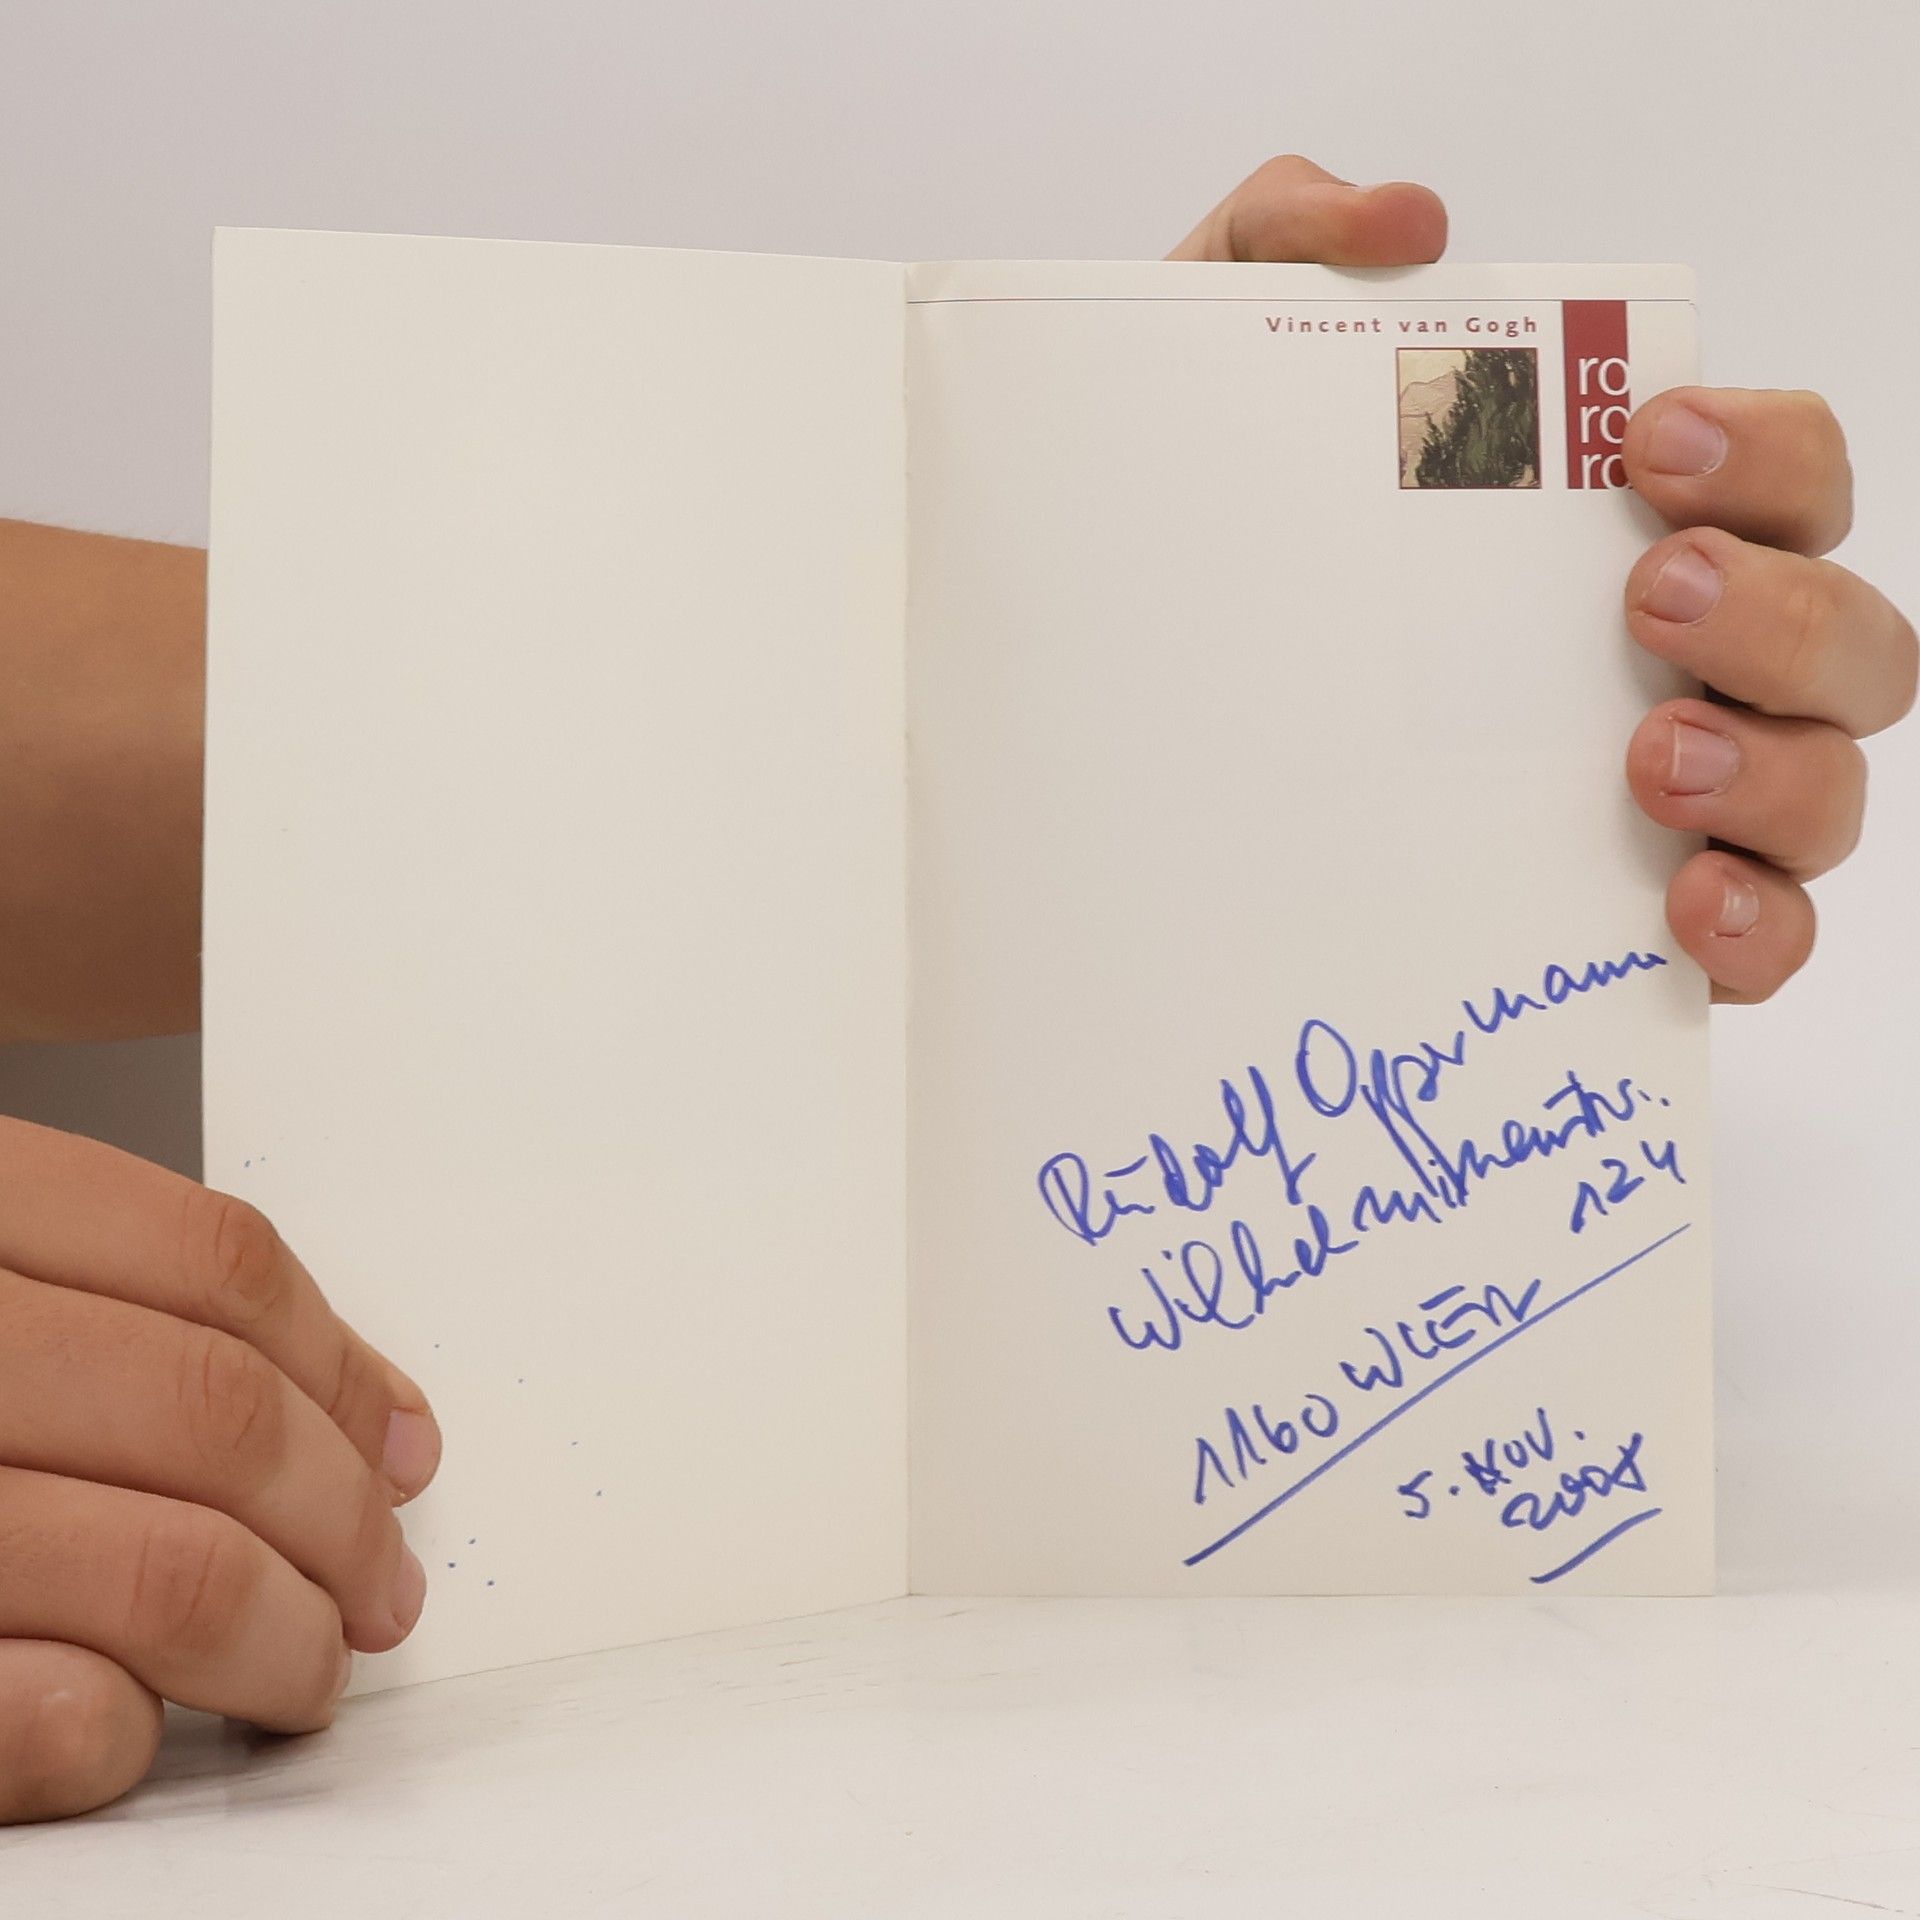 Vincent van Gogh
ro
ro
ro
Rudolf Oppermann
Wilhelminenstr.
124
1160 WIEN
5. NOV.
2008